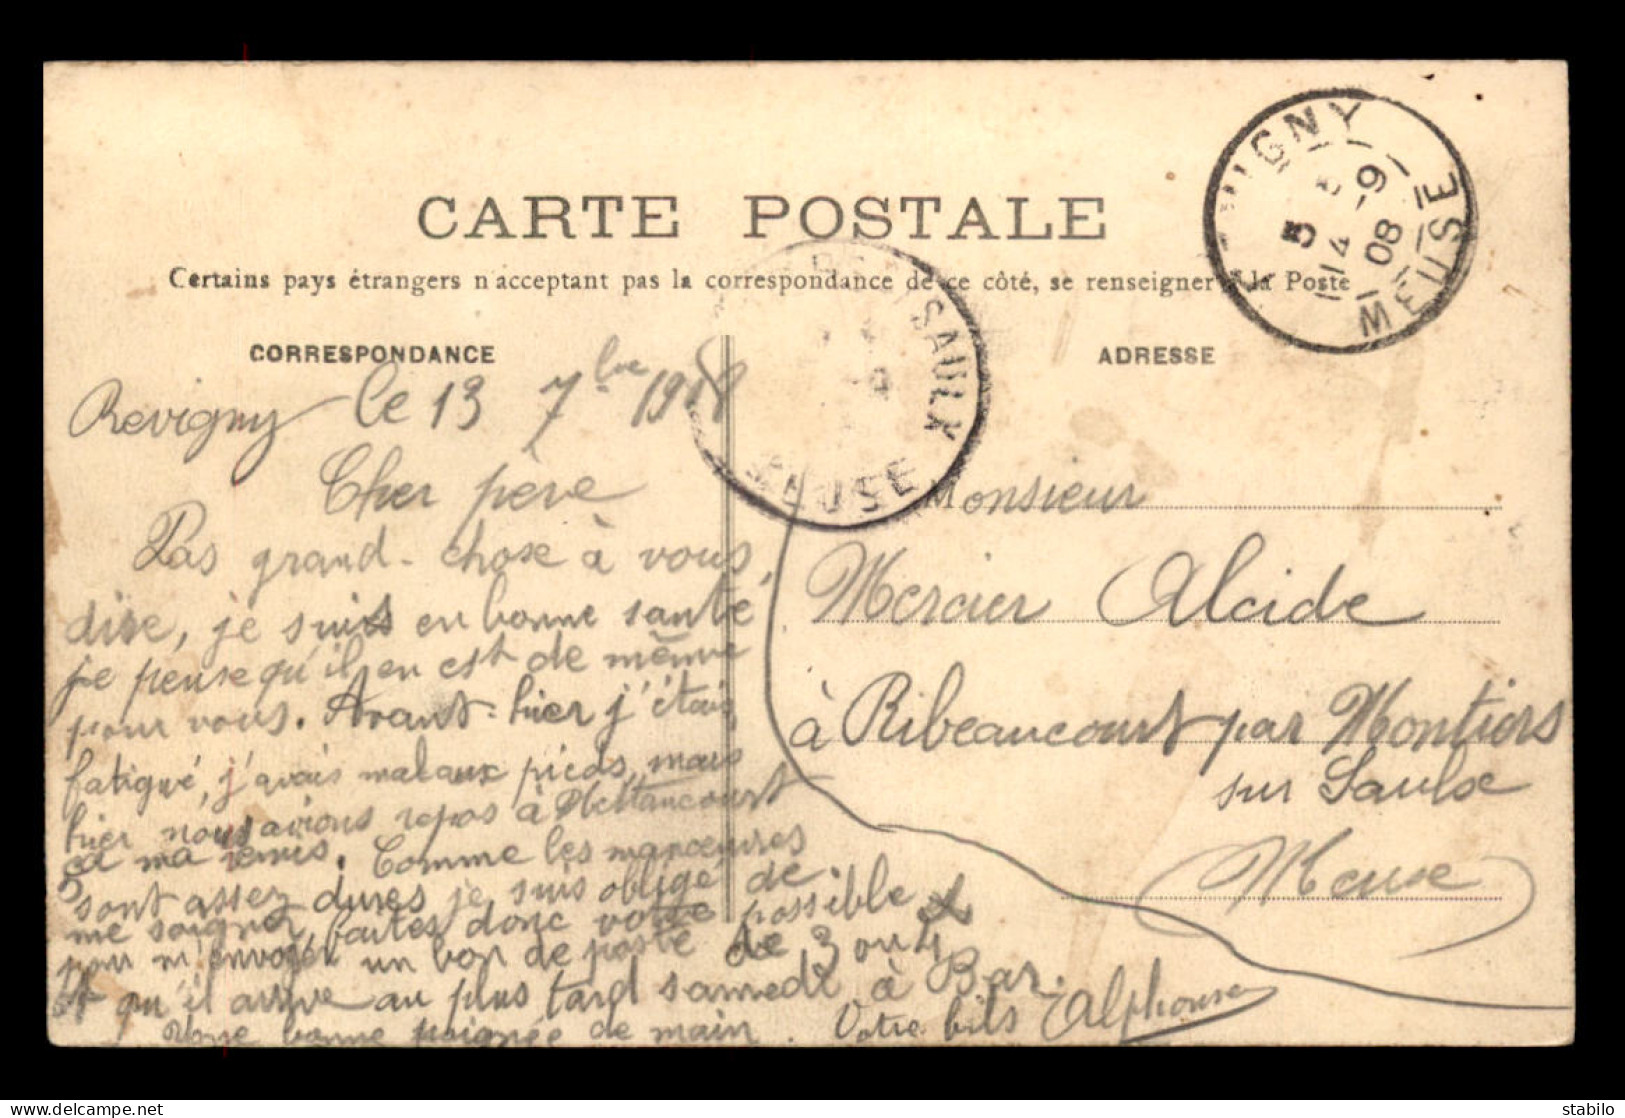 CARTE POSTALE
Certains pays étrangers n'acceptant pas la correspondance de ce côté, se renseigner à la Poste
CORRESPONDANCE
Revigny le 13 7bre 1908
Cher père
Pas grand-chose à vous
dire, je suis en bonne santé
je pense qu'il en est de même
pour vous. Avant-hier j'étais
fatigué, j'avais mal aux pieds, mais
hier nous avions repos à Mettancourt
ça m'a remis. Comme les manœuvres
sont assez dures je suis obligé de
me soigner, faites donc votre possible
pour m'envoyer un bon de poste de 3 ou 4
et qu'il arrive au plus tard samedi à Bar.
Une bonne poignée de main. Votre fils Alphonse
ADRESSE
Monsieur
Mercier Alcide
à Ribeaucourt par Montiers
sur Saulx
Meuse
VIGNY
14 -9
08
MEUSE
SAULX
MEUSE
stabilo